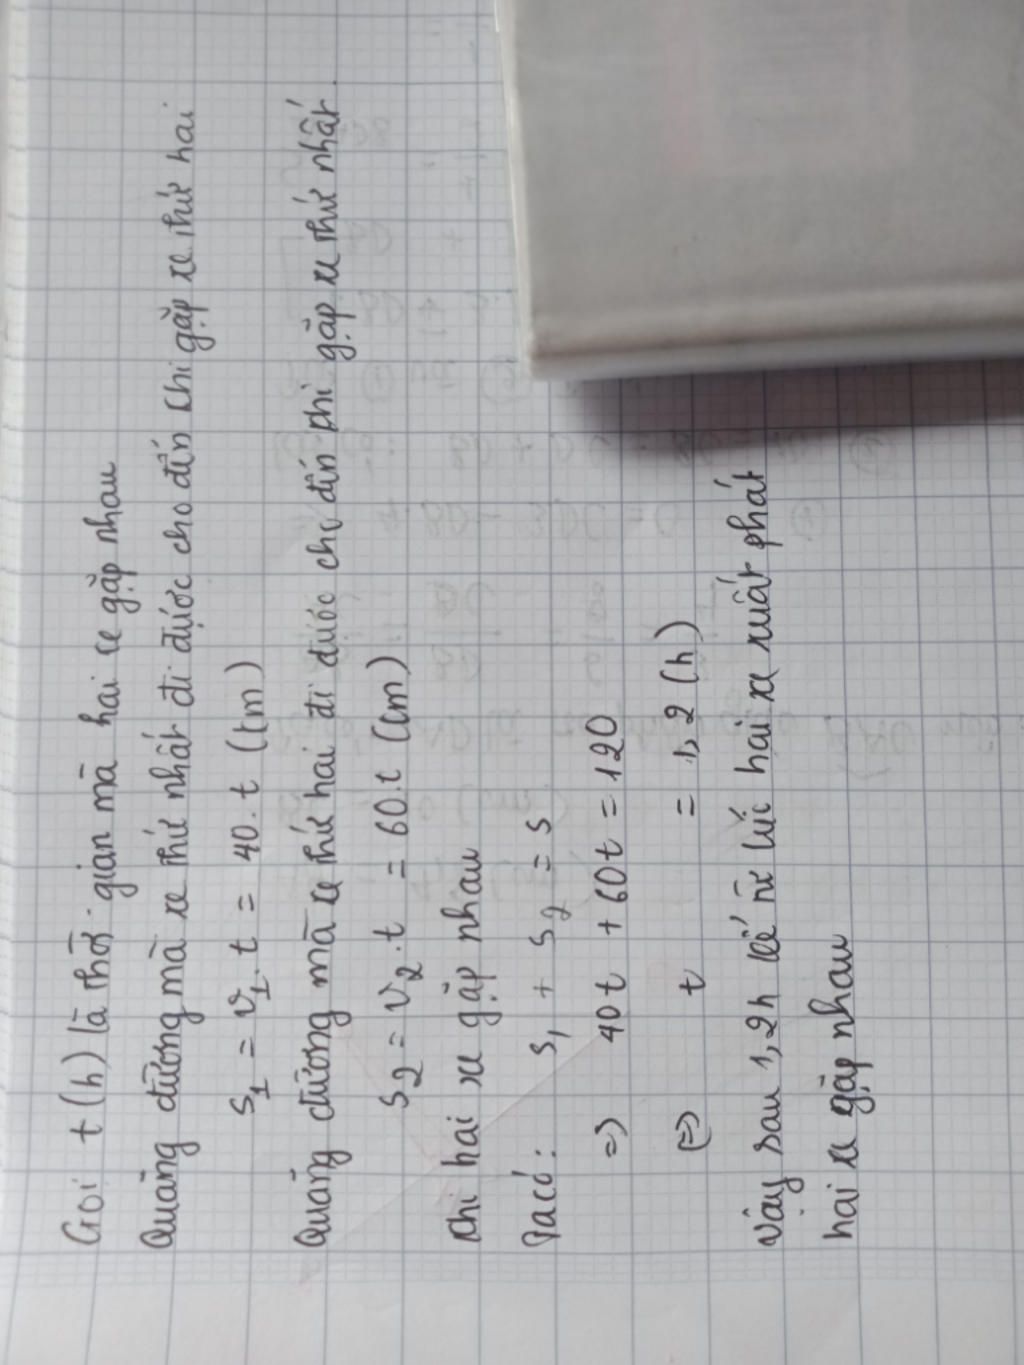 Gọi t (h) là thời gian mà hai xe gặp nhau
Quãng đường mà xe thứ nhất đi được cho đến khi gặp xe thứ hai
S₁ = v₁.t = 40.t (km)
Quãng đường mà xe thứ hai đi được cho đến khi gặp xe thứ nhất.
S₂ = v₂.t = 60.t (km)
Khi hai xe gặp nhau
Ta có: S₁ + S₂ = S
=> 40t + 60t = 120
<=> t = 1,2 (h)
Vậy sau 1,2h kể từ lúc hai xe xuất phát
hai xe gặp nhau